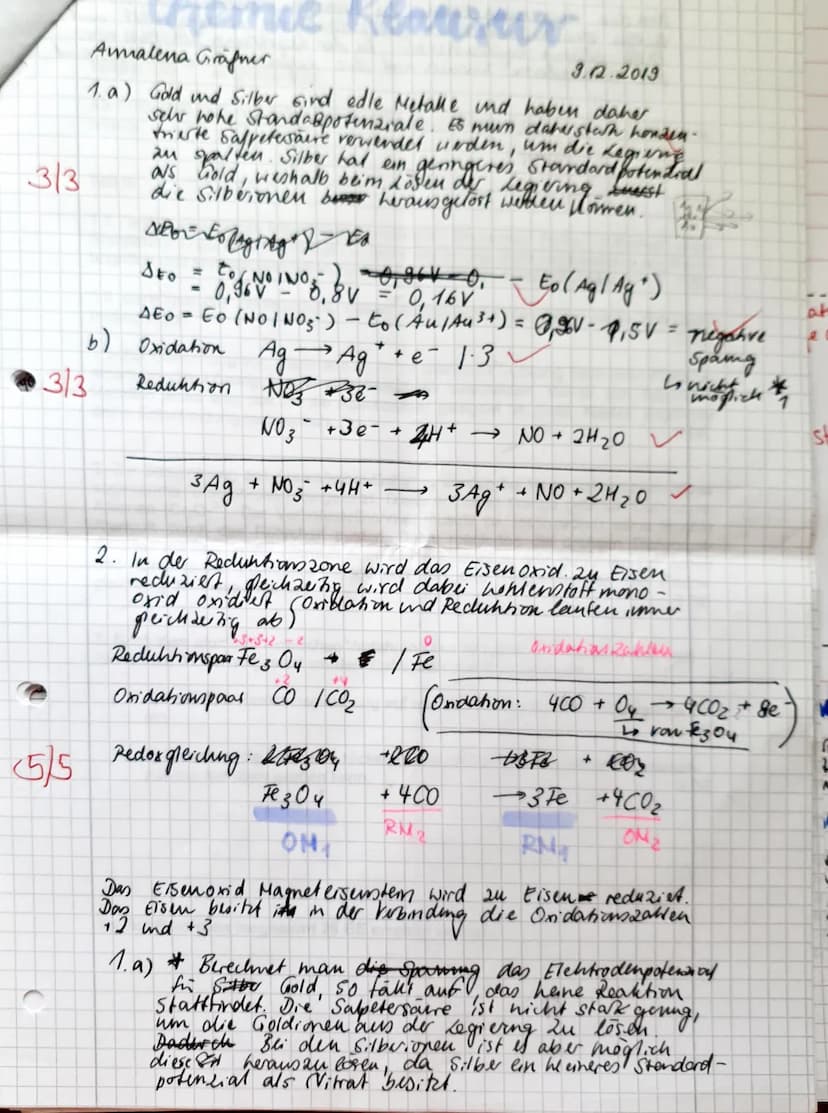 Chemie Klausur
Annalena Gräfner
9.12.2019
1.a) Gold und Silber sind edle Metalle und haben daher
sehr hohe Standardpotenziale. Es muss daher stark konzen-
trierte Salpetersäure verwendet werden, um die Legierung
zu spalten. Silber hat ein geringeres Standardpotenzial
als Gold, weshalb beim Lösen der Legierung
die Silberionen herausgelöst werden können.
3/3
ΔE0 = E0(NO|NO3-) - E0(Ag/Ag+)
= 0,96V - 0,8V = 0,16V
ΔE0 = E0(NO|NO3-) - E0(Au/Au3+) = 0,96V - 1,5V = negative
Spannung
↳ nicht
möglich *1
b) Oxidation Ag → Ag+ + e- |·3
3/3
Reduktion NO3- + 3e-
NO3- + 3e- + 4H+ → NO + 2H2O
3Ag + NO3- + 4H+ → 3Ag+ + NO + 2H2O
2. In der Reduktionszone wird das Eisenoxid zu Eisen
reduziert, gleichzeitig wird dabei Kohlenstoffmono-
oxid oxidiert (Oxidation und Reduktion laufen immer
gleichzeitig ab)
+3+3+2 -2 0 Oxidationszahlen
Reduktionspaar Fe3O4 / Fe
+2 +4
Oxidationspaar CO / CO2 (Oxidation: 4CO + O4 → 4CO2 + 8e-)
↳ von Fe3O4
5/5
Redoxgleichung:
Fe3O4 + 4CO → 3Fe + 4CO2
OM1 RM2 RM1 OM2
Das Eisenoxid Magneteisenstein wird zu Eisen reduziert.
Das Eisen besitzt in der Verbindung die Oxidationszahlen
+2 und +3
1.a) * Berechnet man die Spannung das Elektrodenpotenzial
für Gold, so fällt auf, das keine Reaktion
stattfindet. Die Salpetersäure ist nicht stark genug,
um die Goldionen aus der Legierung zu lösen.
Dadurch Bei den Silberionen ist es aber möglich
diese herauszulösen, da Silber ein kleineres Standard-
potenzial als Nitrat besitzt.